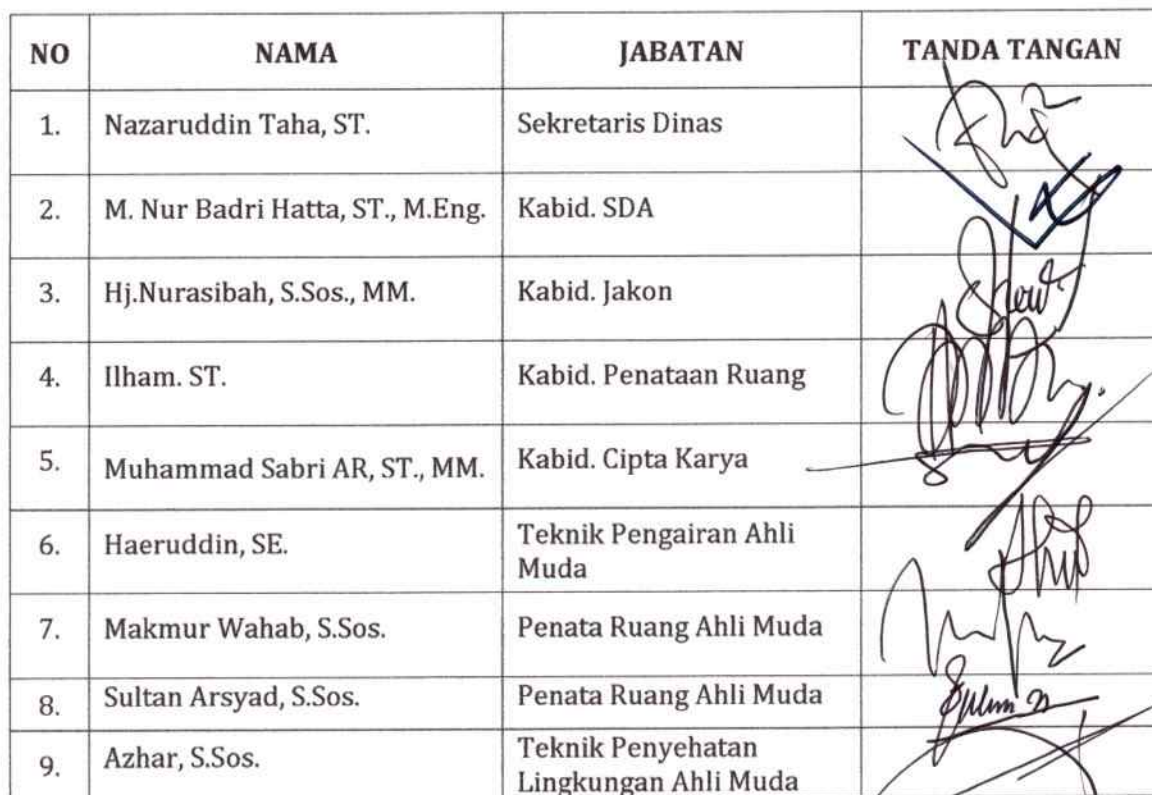 NO NAMA JABATAN TANDA TANGAN
1. Nazaruddin Taha, ST. Sekretaris Dinas
2. M. Nur Badri Hatta, ST., M.Eng. Kabid. SDA
3. Hj.Nurasibah, S.Sos., MM. Kabid. Jakon
4. Ilham. ST. Kabid. Penataan Ruang
5. Muhammad Sabri AR, ST., MM. Kabid. Cipta Karya
6. Haeruddin, SE. Teknik Pengairan Ahli
Muda
7. Makmur Wahab, S.Sos. Penata Ruang Ahli Muda
8. Sultan Arsyad, S.Sos. Penata Ruang Ahli Muda
9. Azhar, S.Sos. Teknik Penyehatan
Lingkungan Ahli Muda